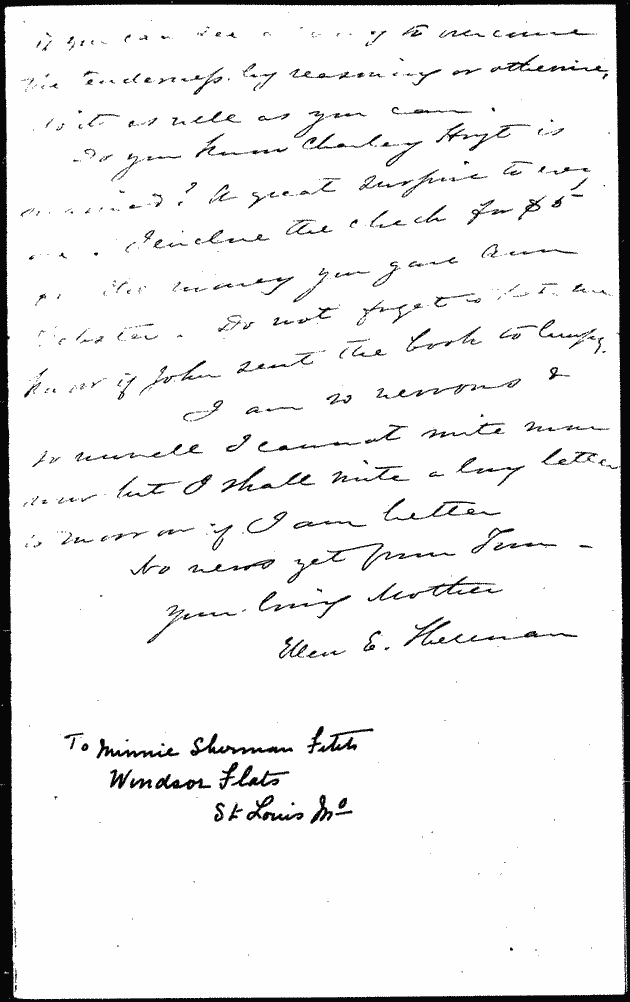 if you can see a way to overcome
the tenderness by reasoning or otherwise,
do it as well as you can.
Do you know Charley Hoyt is
married? A great surprise to every
one. I enclose the check for $5
for the money you gave Ann
Do not forget to let me
know if John sent the book to
I am so nervous &
so unwell I cannot write more
now but I shall write a long letter
to morrow if I am better
No news yet from Tom -
Your loving Mother
Ellen E. Sherman
To Minnie Sherman Fitch
Windsor Flats
St Louis Mo